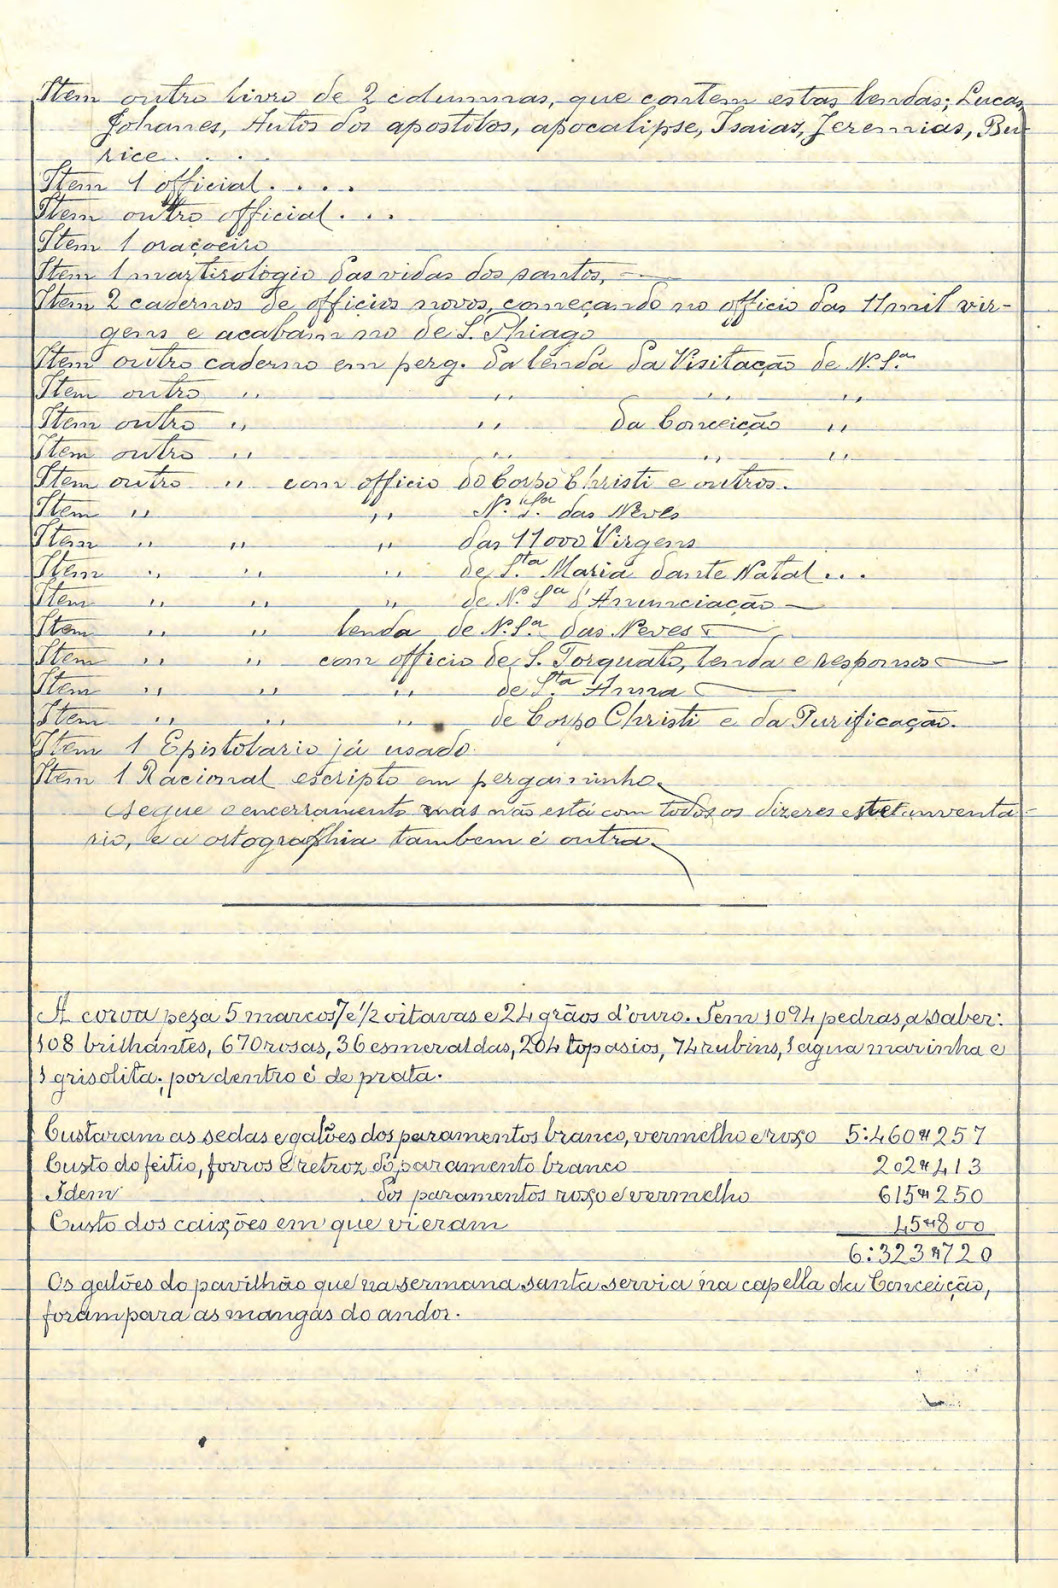 Item outro livro de 2 columnas, que contem estas lendas; Lucas,
Johanes, Autos dos apostolos, apocalipse, Isaias, Jeremias, Bu-
rice. . . .
Item 1 official. . . .
Item outro official. . .
Item 1 oraçoeiro
Item 1 martirologio das vidas dos santos,
Item 2 cadernos de officios novos, começando no officio das 11 mil vir-
gens e acabam no de S. Thiago
Item outro caderno em perg. da lenda da Visitação de N. S.ra
Item outro " " " "
Item outro " " da Conceição "
Item outro " " " "
Item outro " com officio do Corpo Christi e outros.
Item " " N. S.ra das Neves
Item " " " das 11000 Virgens
Item " " " de S.ta Maria dante Natal...
Item " " " de N. S.a d'Anunciação
Item " " lenda de N. S.a das Neves
Item " " com officio de S. Torquato, lenda e responsos
Item " " " de S.ta Anna
Item " " " de Corpo Christi e da Purificação.
Item 1 Epistolario já usado
Item 1 Racional escripto em pergaminho.
Segue o encerramento mas não está com todos os dizeres este inventa-
rio, e a ortographia tambem é outra.
A coroa peza 5 marcos 7 e 1/2 oitavas e 24 grãos d'ouro. Tem 1094 pedras, a saber:
108 brilhantes, 670 rosas, 36 esmeraldas, 204 topasios, 74 rubins, 1 agua marinha e
1 grisolita; por dentro é de prata.
Custaram as sedas e galões dos paramentos branco, vermelho e roxo 5:460$257
Custo do feitio, forros e retroz do paramento branco 202$413
Idem dos paramentos roxo e vermelho 615$250
Custo dos caixões em que vieram 45$800
6:323$720
Os galões do pavilhão que na sermana santa servia na capella da Conceição,
foram para as mangas do andor.